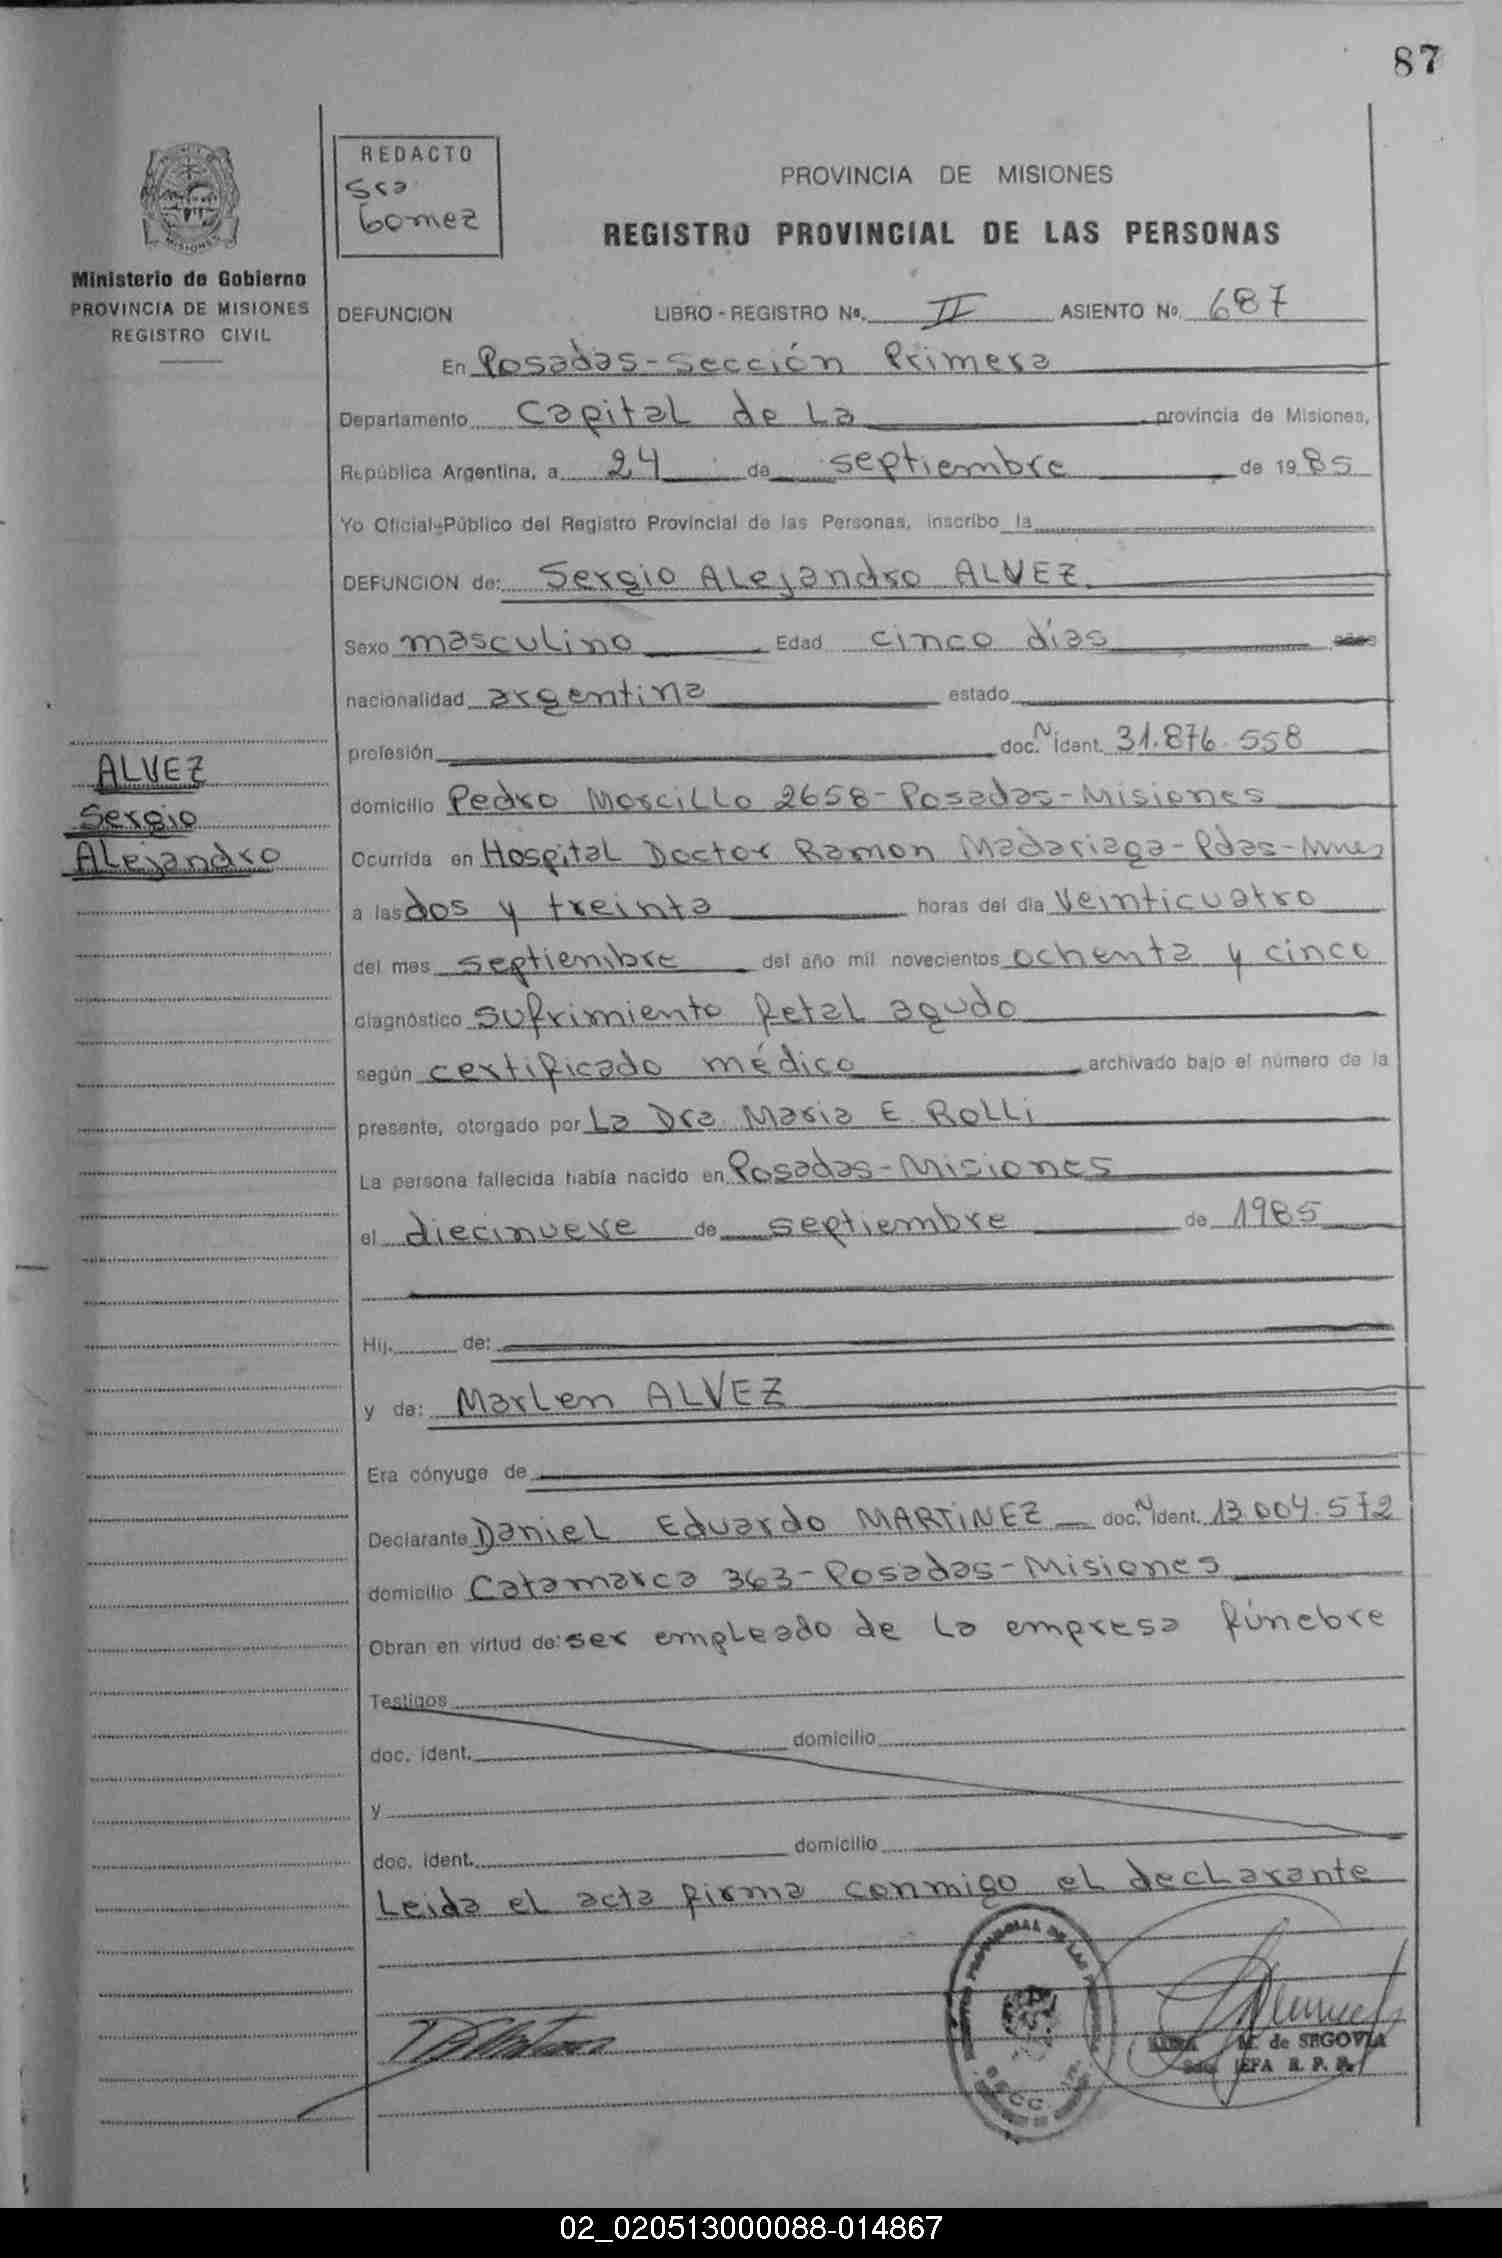 87
REDACTO
Sra
Gomez
PROVINCIA DE MISIONES
REGISTRO PROVINCIAL DE LAS PERSONAS
MISIONES
Ministerio de Gobierno
PROVINCIA DE MISIONES
REGISTRO CIVIL
DEFUNCION LIBRO - REGISTRO Nº. II ASIENTO Nº. 687
En Posadas-Sección Primera
Departamento Capital de La provincia de Misiones,
República Argentina, a 24 de septiembre de 1985
Yo Oficial Público del Registro Provincial de las Personas, inscribo la
DEFUNCION de: Sergio Alejandro ALVEZ
Sexo masculino Edad cinco días años
nacionalidad argentina estado
profesión doc. N ident. 31.876.558
ALVEZ
Sergio
Alejandro
domicilio Pedro Morcillo 2658-Posadas-Misiones
Ocurrida en Hospital Doctor Ramon Madariaga-Pdas-Mnes
a las dos y treinta horas del día Veinticuatro
del mes septiembre del año mil novecientos ochenta y cinco
diagnóstico sufrimiento fetal agudo
según certificado médico archivado bajo el número de la
presente, otorgado por La Dra. Maria E. ROLLi
La persona fallecida había nacido en Posadas-Misiones
el diecinueve de septiembre de 1985
Hij. de:
y de: Marlen ALVEZ
Era cónyuge de
Declarante Daniel Eduardo MARTiNEZ doc. N ident. 13.004.572
domicilio Catamarca 363-Posadas-Misiones
Obran en virtud de: ser empleado de la empresa fúnebre
Testigos
doc. ident. domicilio
y
doc. ident. domicilio
Leida el acta firma conmigo el declarante
M. de SEGOVIA
JEFA R. P. P.
02_020513000088-014867